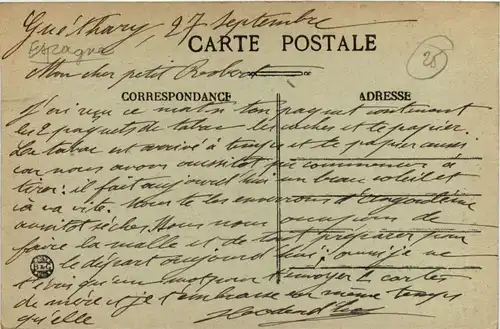 Guéthary, 27 Septembre
Espagne
28
CARTE POSTALE
Mon cher petit Robert
CORRESPONDANCE
ADRESSE
J'ai reçu ce matin ton paquet contenant
les 2 paquets de tabac les et le papier.
Le tabac est arrivé à temps et le papier aussi
car nous avons aussitôt pu commencer à
tirer: il fait aujourd'hui un beau soleil et
çà va vite. les environs d'Angoulême
aussitôt séchés. Nous nous occupons de
faire la malle et de tout préparer pour
le départ aujourd'hui; aussi je ne
t'écris qu'un mot pour t'envoyer 2 cartes
de mère et je t'embrasse en même temps
qu'elle